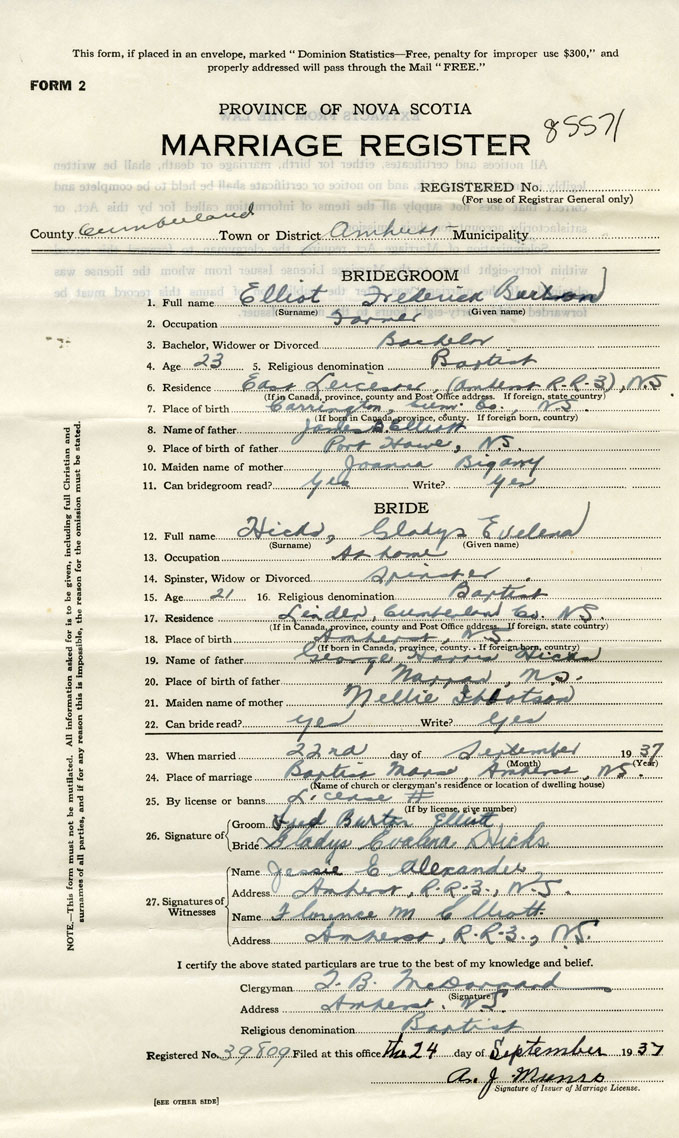 This form, if placed in an envelope, marked "Dominion Statistics—Free, penalty for improper use $300," and
properly addressed will pass through the Mail "FREE."
FORM 2
PROVINCE OF NOVA SCOTIA
MARRIAGE REGISTER 85571
REGISTERED No.
(For use of Registrar General only)
County Cumberland Town or District Amherst Municipality
BRIDEGROOM
1. Full name Elliot Frederick Burton
(Surname) (Given name)
2. Occupation Farmer
3. Bachelor, Widower or Divorced Bachelor
4. Age 23 5. Religious denomination Baptist
6. Residence East Leicester, (Amherst R-R-3), N.S.
(If in Canada, province, county and Post Office address. If foreign, state country)
7. Place of birth Carrington, Cum. Co., N.S.
(If born in Canada, province, county. If foreign born, country)
8. Name of father James B. Elliott
9. Place of birth of father Port Howe, N.S.
10. Maiden name of mother Joanna
11. Can bridegroom read? Yes Write? Yes
BRIDE
12. Full name Hicks, Gladys Evelena
(Surname) (Given name)
13. Occupation At home
14. Spinster, Widow or Divorced Spinster
15. Age 21 16. Religious denomination Baptist
17. Residence Linden, Cumberland Co. N.S.
(If in Canada, province, county and Post Office address. If foreign, state country)
18. Place of birth Amherst, N.S.
(If born in Canada, province, county. If foreign born, country)
19. Name of father George Harris Hicks
20. Place of birth of father Nappan, N.S.
21. Maiden name of mother Nellie Ibbotson
22. Can bride read? Yes Write? Yes
23. When married 22nd day of September 1937
(Month) (Year)
24. Place of marriage Baptist Manse, Amherst, N.S.
(Name of church or clergyman's residence or location of dwelling house)
25. By license or banns License #
(If by license, give number)
26. Signature of Groom Fred Burton Elliott
Bride Gladys Evalina Hicks
27. Signatures of Witnesses Name Jessie E Alexander
Address Amherst, R.R.3., N.S.
Name Florence M Elliott
Address Amherst, R.R.3., N.S.
I certify the above stated particulars are true to the best of my knowledge and belief.
Clergyman
(Signature)
Address Amherst, N.S.
Religious denomination Baptist
Registered No. 39809 Filed at this office the 24 day of September 1937
A. J. Munro
Signature of Issuer of Marriage License.
[SEE OTHER SIDE]
NOTE.—This form must not be mutilated. All information asked for is to be given, including full Christian and
surnames of all parties, and if for any reason this is impossible, the reason for the omission must be stated.